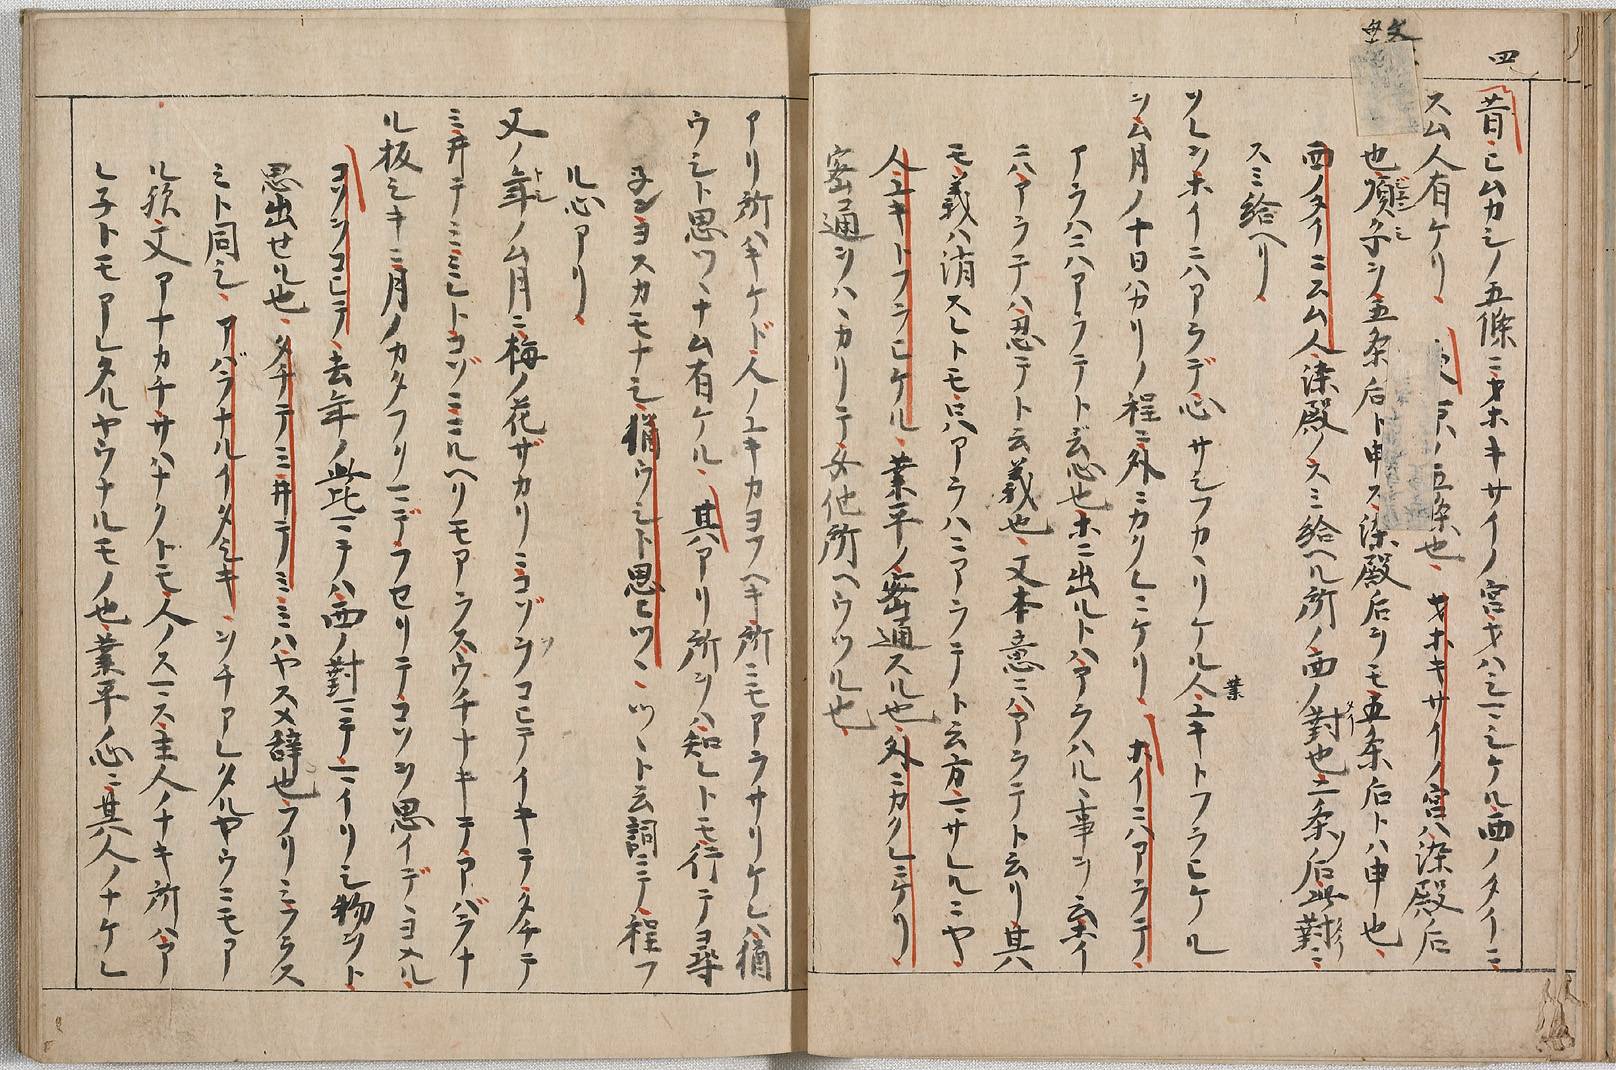 四
昔ヒムカシノ五條ニオホキサイノ宮オハシマシケル西ノタイニ
スム人有ケリ、東京ノ五条也、オホキサイノ宮ハ染殿ノ后
也順子ヲ五条后ト申ス染殿后ヲモ五条后トハ申也、
西ノタイニスム人、染殿ノスミ給ヘル所ノ西ノ對也二条ノ后此對ニ
スミ給ヘリ、
ソレヲホイニハアラデ心サシフカヽリケル人ユキトフラヒケル
業
ヲム月ノ十日ハカリノ程ニ外ニカクレニケリ、ホイニハアラテ、
アラハニハアラテト云心也ホニ出ルトハアラハルヽ事ヲ云ホイ
ニハアラテハ忍テト云義也、又本意ニハアラテト云リ其
モ義ハ消スレトモ只アラハニアラテト云方マサレルニヤ、
人ユキトフラヒケル、業平ノ密通スル也、外ニカクレニケリ、
密通ヲハヽカリテ女他所ヘウツル也、
アリ所ハキケド人ノユキカヨフヘキ所ニモアラサリケレハ猶
ウシト思ツヽナム有ケル、其ハアリ所ヲハ知レトモ行テ尋
ヌヘキヨスカモナシ、猶ウシト思ヒツヽ、ツヽト云詞ニテ程フ
ル心アリ、
又ノ年ノム月ニ梅ノ花ザカリニコゾヲコヒテイキテタチテ
ミ井テミミレトコゾニニルヘクモアラスウチナキテアバラナ
ル板シキニ月ノカタフクマデフセリテコソヲ思イデヽヨメル
コソヲコヒテ、去年ノ此マテハ西ノ對ニテマイリシ物ヲト
思出セル也、タチテミ井テミ、ミハヤスメ辞也フリミフラス
ミト同シ、アバラナルイタシキ、ヲチアレタルヤウニモア
ル歟又アナカチサハナクトモ人ノスマス主人ノナキ所ハア
レ子トモアレタルヤウナルモノ也、業平ノ心ニ其人ノナケレ